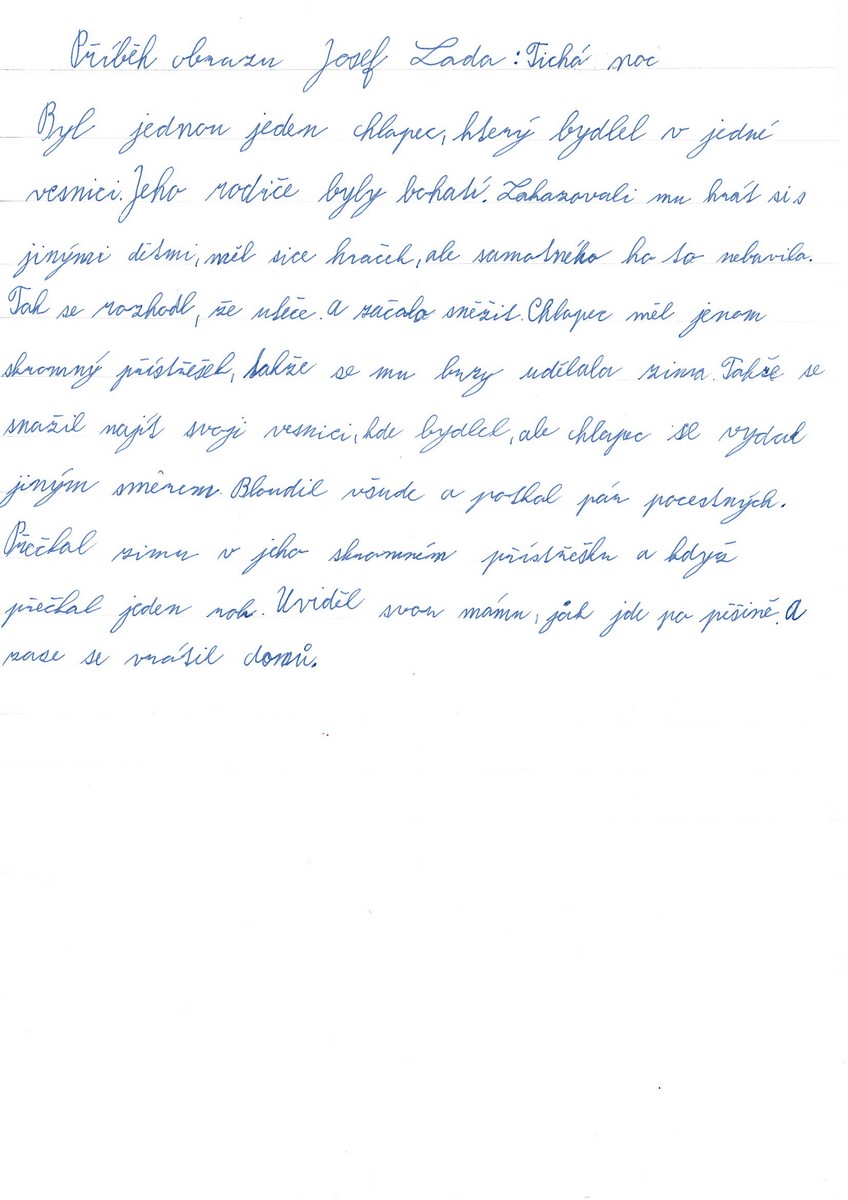 Příběh obrazu Josef Lada: Tichá noc
Byl jednou jeden chlapec, který bydlel v jedné
vesnici. Jeho rodiče byly bohatí. Zakazovali mu hrát si s
jinými dětmi, měl sice hraček, ale samotného ho to nebavilo.
Tak se rozhodl, že uteče. A začalo sněžit. Chlapec měl jenom
skromný přístřešek, takže se mu brzy udělala zima. Takže se
snažil najít svoji vesnici, kde bydlel, ale chlapec se vydal
jiným směrem. Bloudil všude a potkal pár pocestných.
Přečkal zimu v jeho skromném přístřešku a když
přečkal jeden rok. Uviděl svou mámu, jak jde po pěšině. A
zase se vrátil domů.